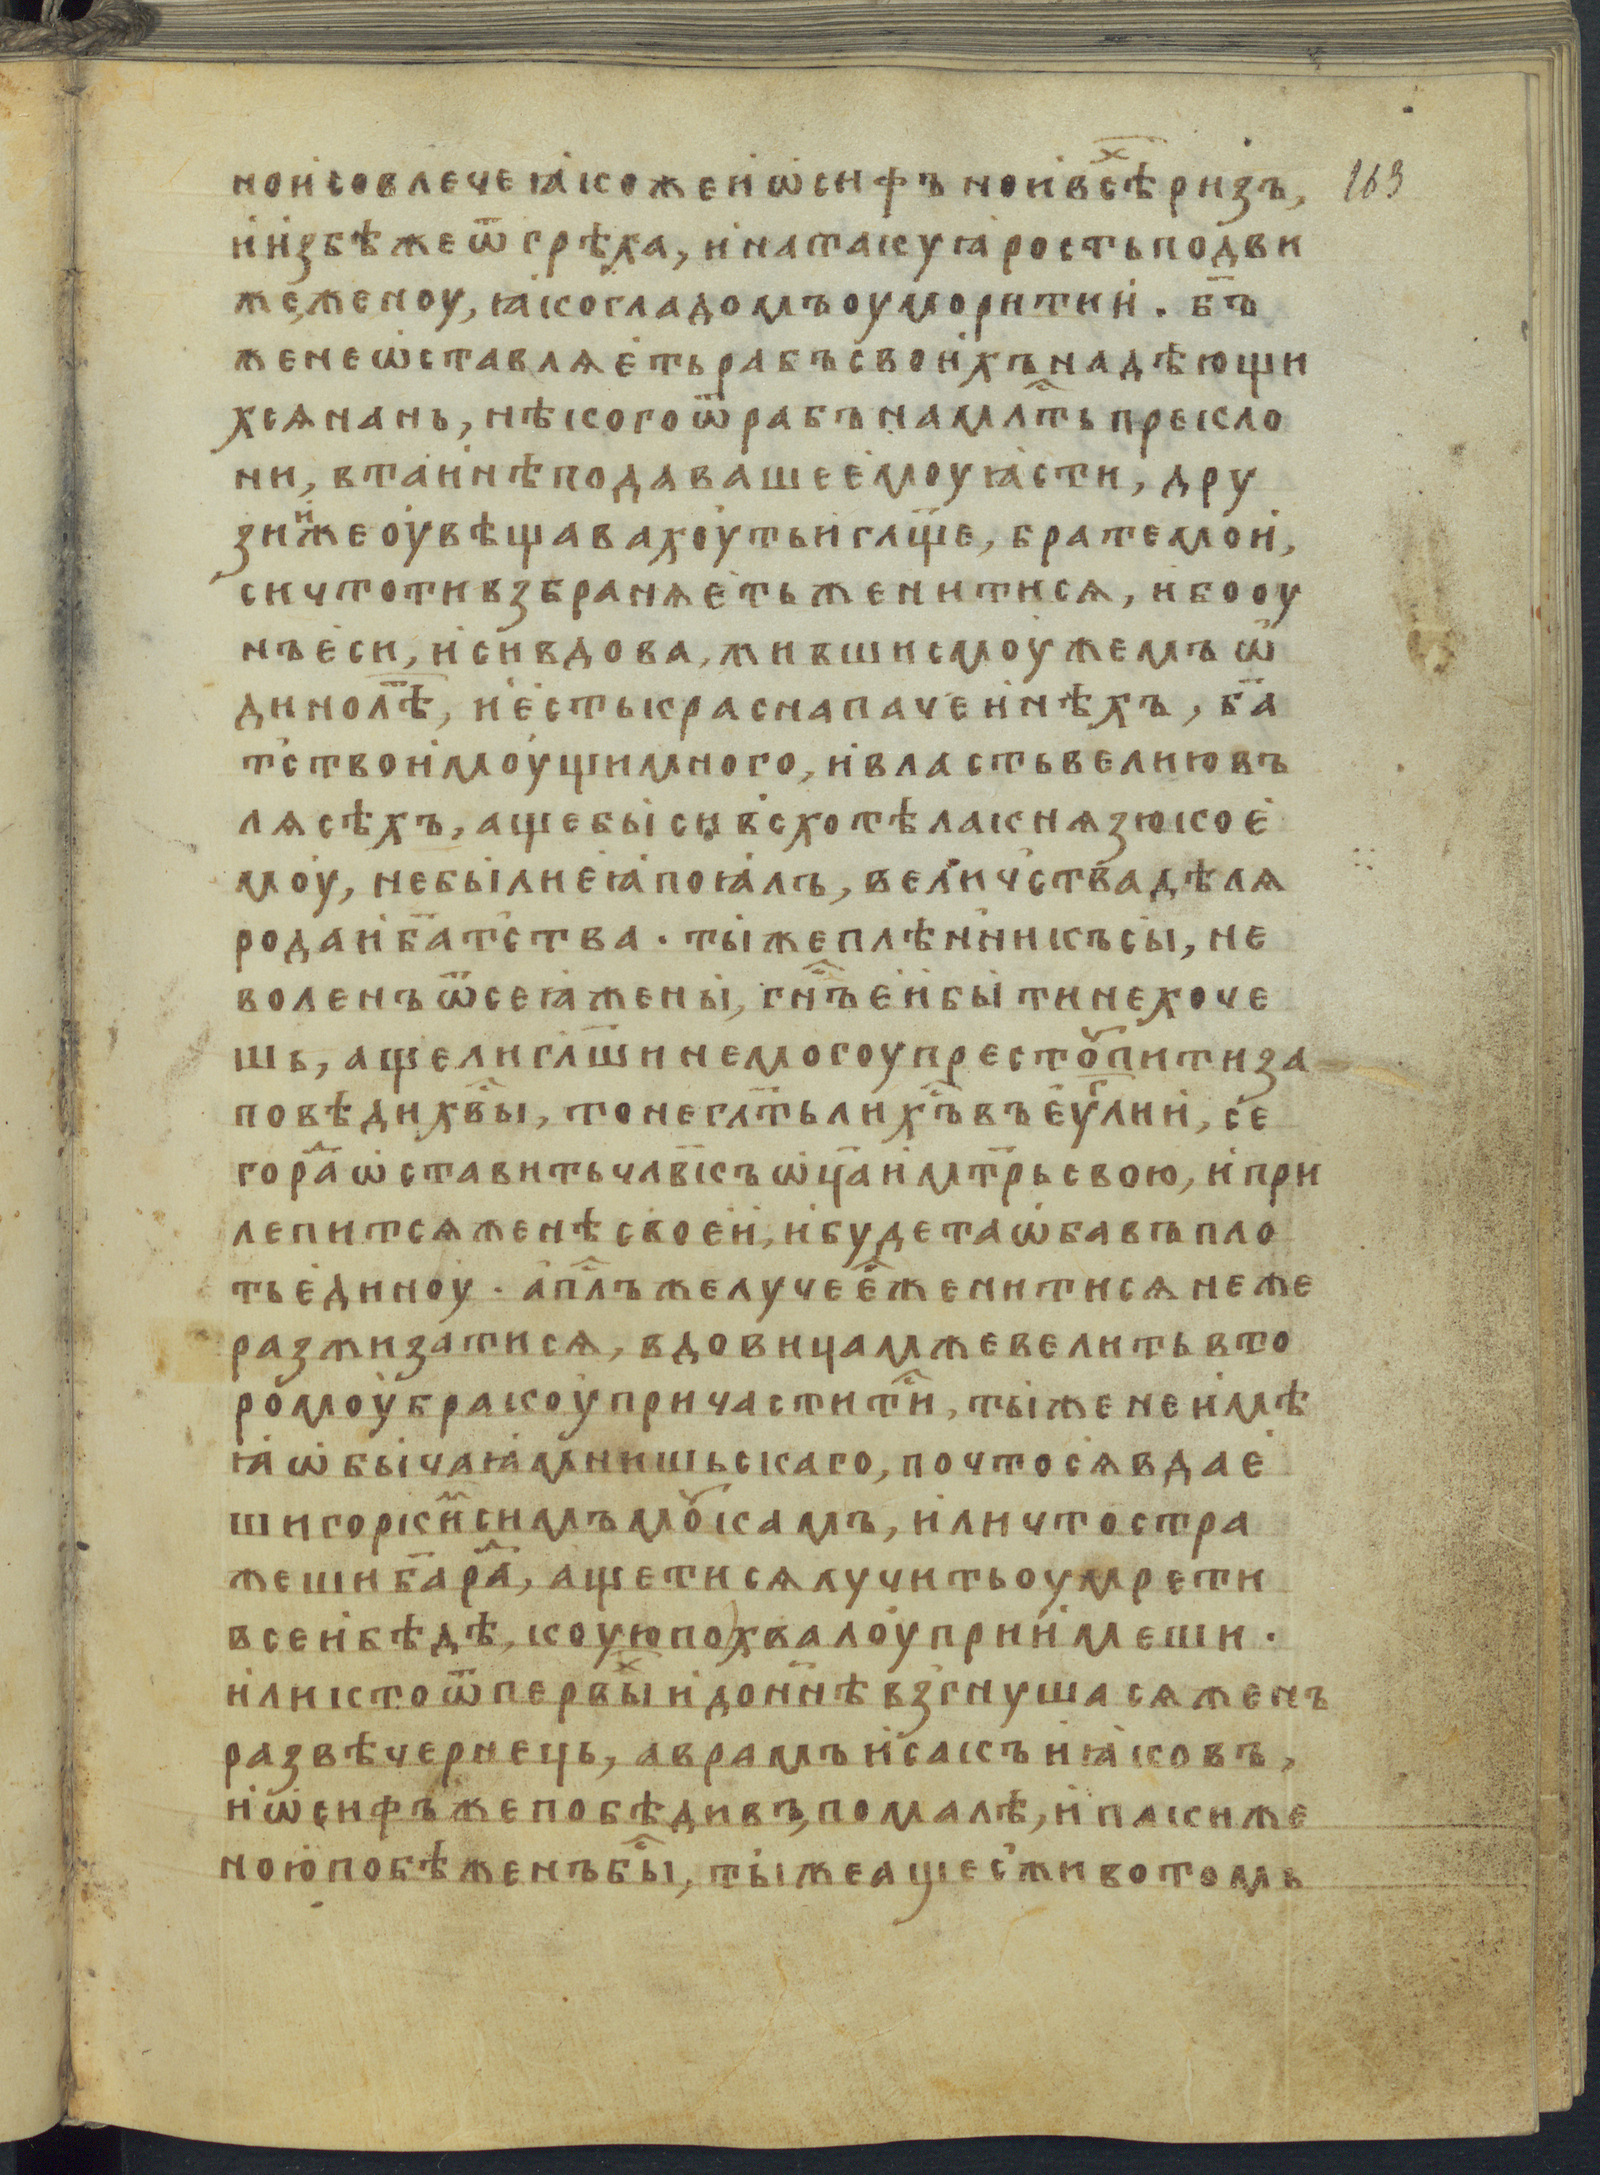 нои҆совлечеꙗ҆коженѡ҆сифъноив҆сѣⷯризъ, 163
ии҆збѣжеѿгрѣха, и҆натакуꙗ҆ростьподви
же,женоу, ꙗ҆согладомъоумори́тии҆. бъ҃
женеѡ҆ставлѧе҆тьрабъсвои҆хънадѣющи
хсѧнань, нѣкогоѿрабънамлⷭ҇тьпрекло
ни, втаи҆нѣподаваше҆е҆моуꙗ҆сти, дру
зиижеоу҆вѣщавахоу҆тьи҆гл҃ще, братемои҆,
сичтотивзбранѧе҆тьженитисѧ, и҆бооу
нъе҆си, и҆сивдова, жившисмоу҆жемъѡ҆
динолⷮѣ, и҆е҆стькраснапачеи҆нѣхъ, ба҃
тⷭ҇твои҆моу҆щимного, и҆властьвелиювъ
лѧсѣхъ, ащебыси҆всхотѣлакнѧзюкое҆
моу҆, небылиеꙗ҆поꙗ҆лъ, вели́чⷭ҇твадѣлѧ
родаи҆ба҃тⷭ҇тва. тыжеплѣнникъсы, не
воленъѿсеꙗ҆жены, гнⷭ҇ъе҆и҆бытинехоче
шь, ащелигл҃шинемогоупрестоупитиза
повѣдихⷭ҇вы, тонегл҃тьлихⷭ҇ъвъе҆у҃ⷢлии҆, се
гораⷣѡ҆ставитьчл҃вкъѡ҆ц҃аи҆мт҃рьсвою, и҆при
лепитсѧженѣсвоеи҆, и҆будетаѡ҆бавъпло
тье҆диноу. а҆плⷭ҇ъжелучееⷭ҇женитисѧнеже
разжизатисѧ, вдовицамжевелитьвто
ромоу҆бракоу҆причаститиⷭ҇, тыженеи҆мѣ
ꙗ҆ѡ҆бычаꙗ҆мнишьскаго, почтосѧвдае҆
шигоркиⷨсимъмоукамъ, и҆личтостра
жешиба҃раⷣ, ащетисѧлучитьоумрети
всеи҆бѣдѣ, коуюпохвалоу҆прии҆меши.
и҆ликтоѿпервыⷯи҆доннѣ҃взгнушасѧженъ
развѣчернець, аврамъи҆сакъи҆ꙗ҆ковъ,
и҆ѡ҆сифъжепобѣдивъ,помалѣ, и҆пакиже
ноюпобѣженъбыⷭ҇, тыжеащесживотомь